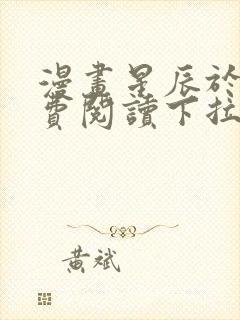 漫畫星辰於
費閱讀下拉
黃斌